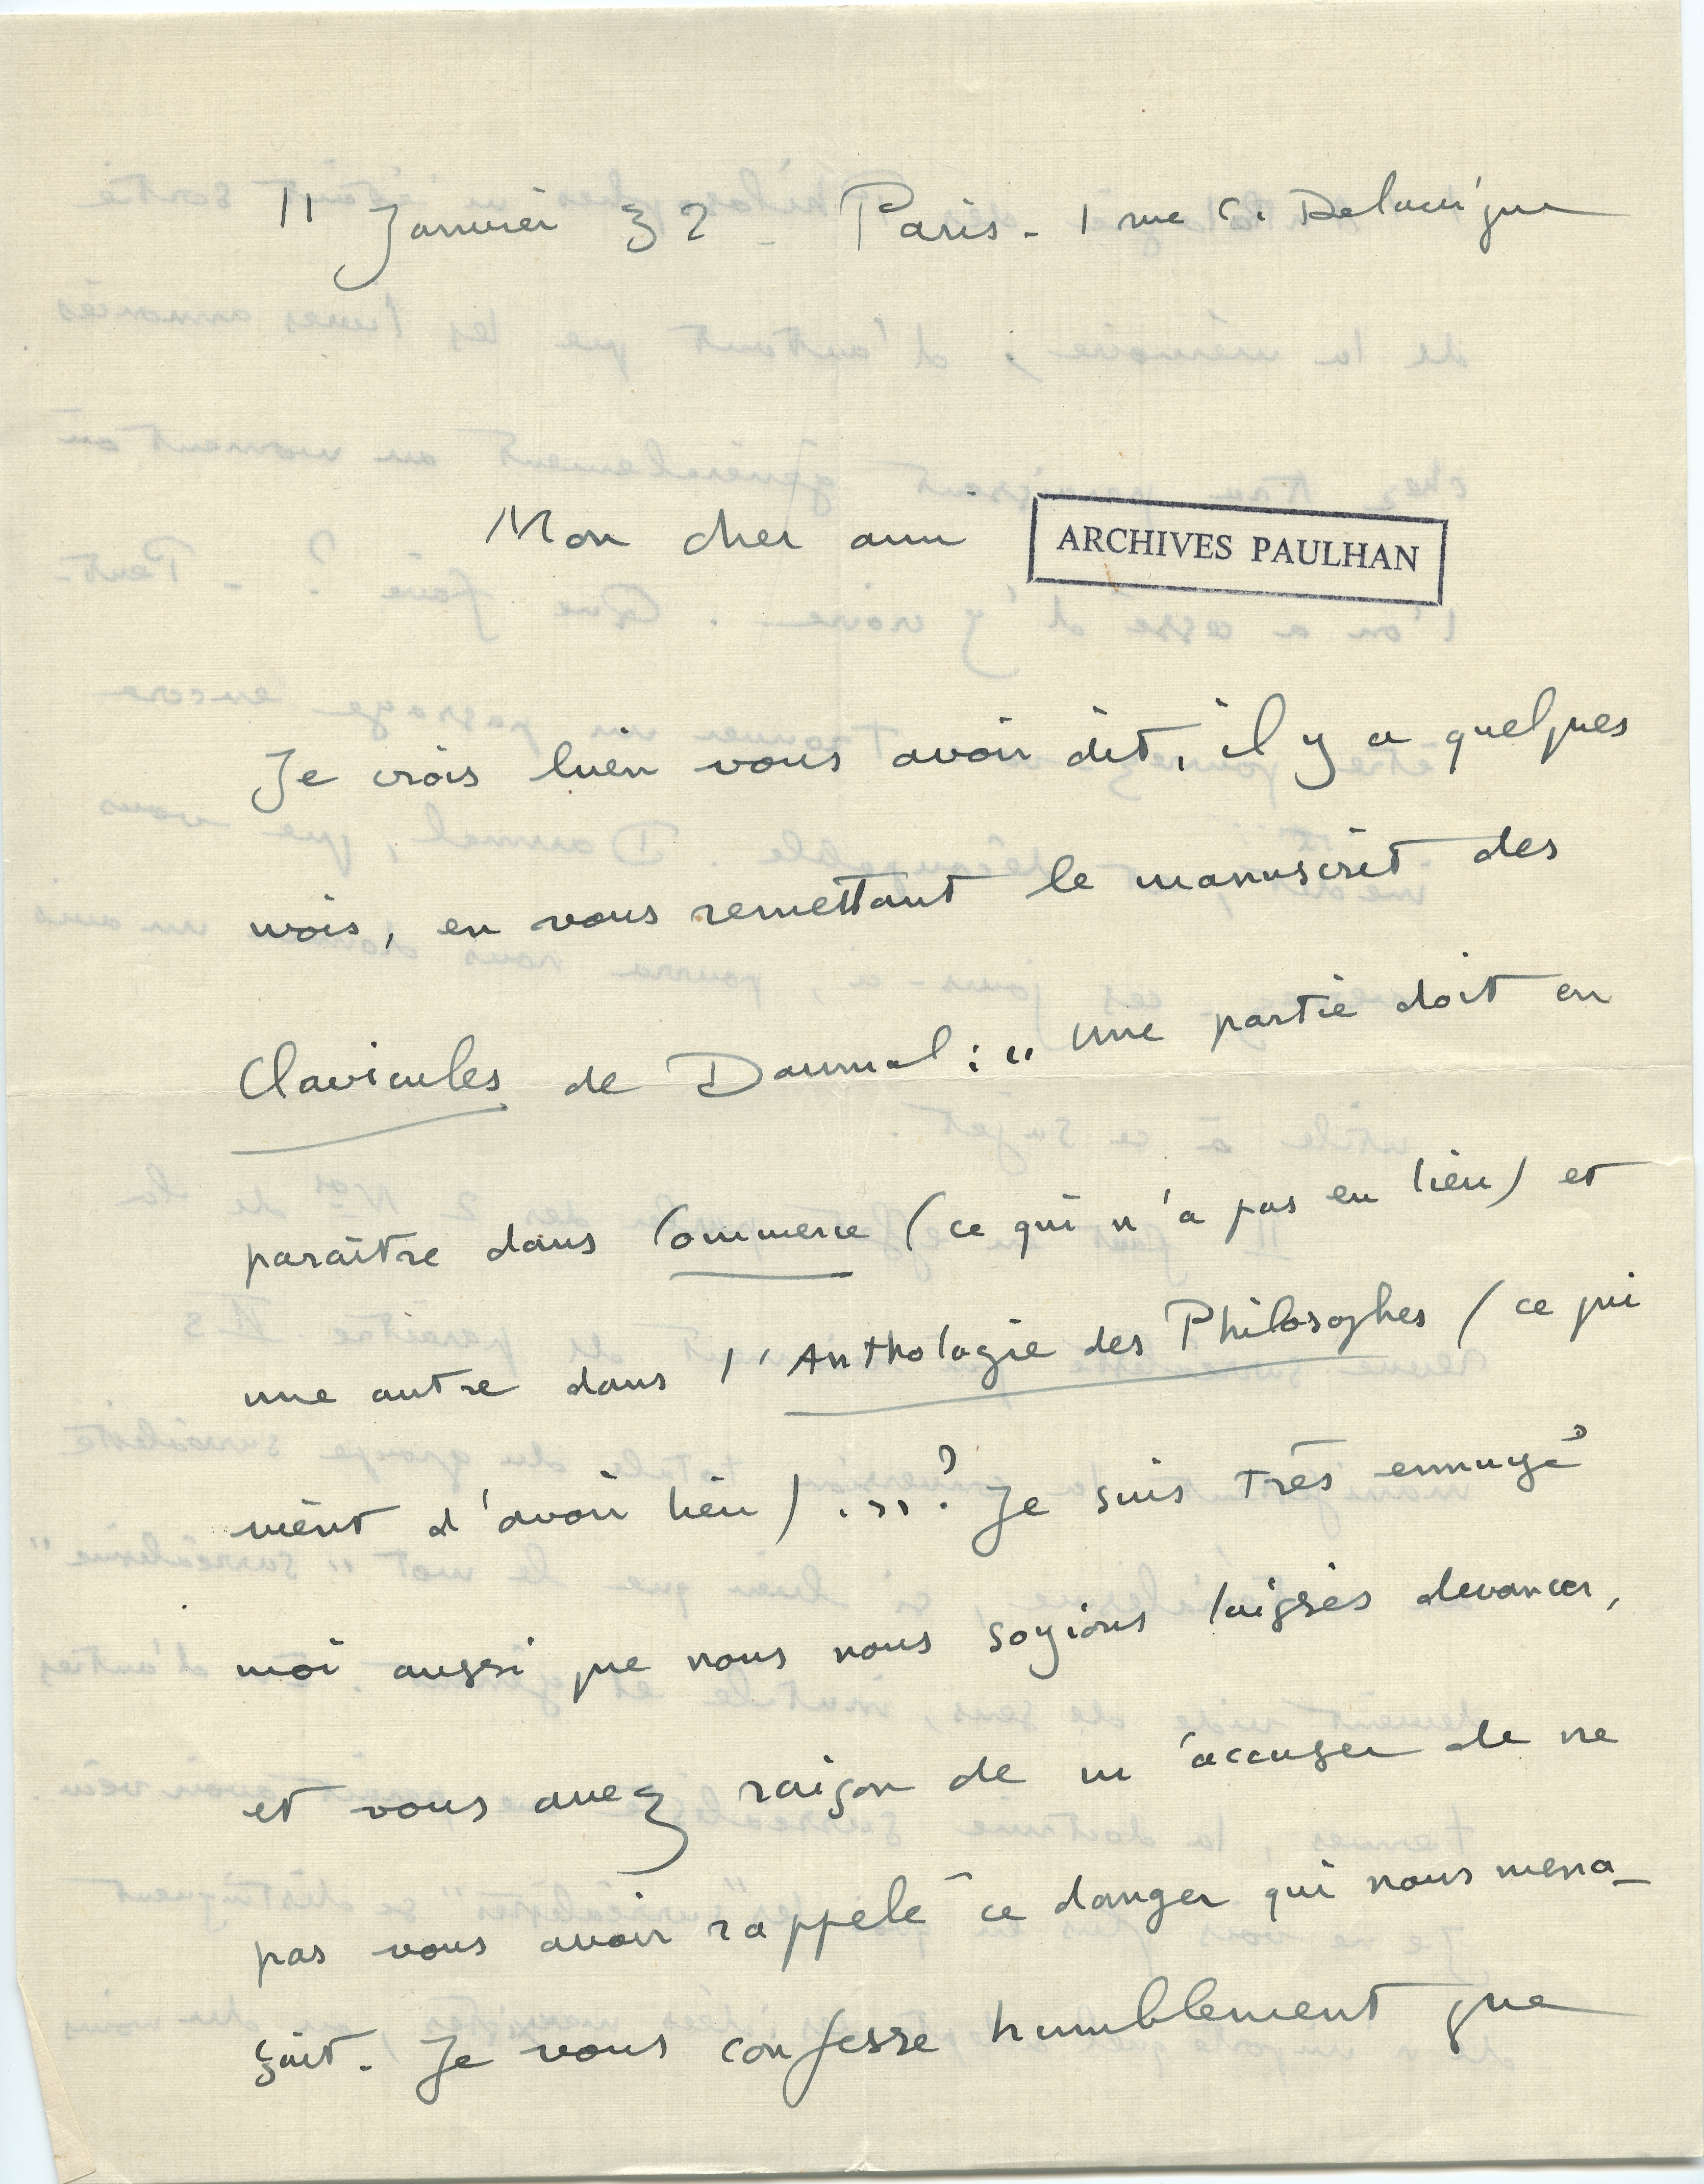 11 Janvier 32 - Paris - 1 rue C. Delavigne
Mon cher ami
ARCHIVES PAULHAN
Je crois bien vous avoir dit, il y a quelques
mois, en vous remettant le manuscrit des
Clavicules de Daumal : " Une partie doit en
paraître dans Commerce (ce qui n'a pas eu lieu) et
une autre dans l'Anthologie des Philosophes (ce qui
vient d'avoir lieu) . " ? Je suis très ennuyé
moi aussi que nous nous soyions laissés devancer,
et vous avez raison de m'accuser de ne
pas vous avoir rappelé ce danger qui nous mena-
çait. Je vous confesse humblement que